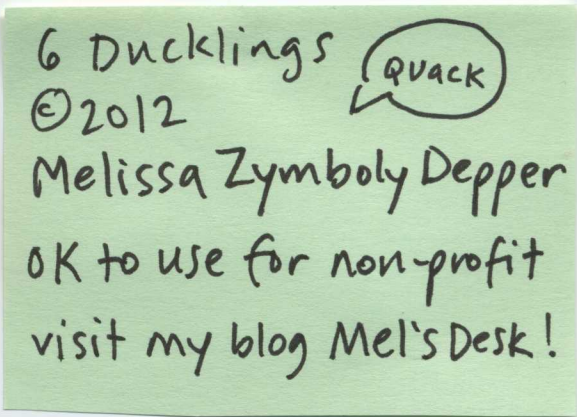 6 Ducklings
QUACK
©2012
Melissa Zymboly Depper
OK to use for non-profit
visit my blog Mel's Desk!